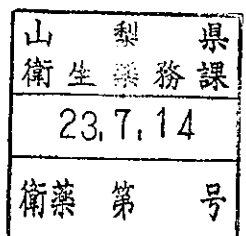 山梨県
衛生薬務課
23.7.14
衛薬第 号